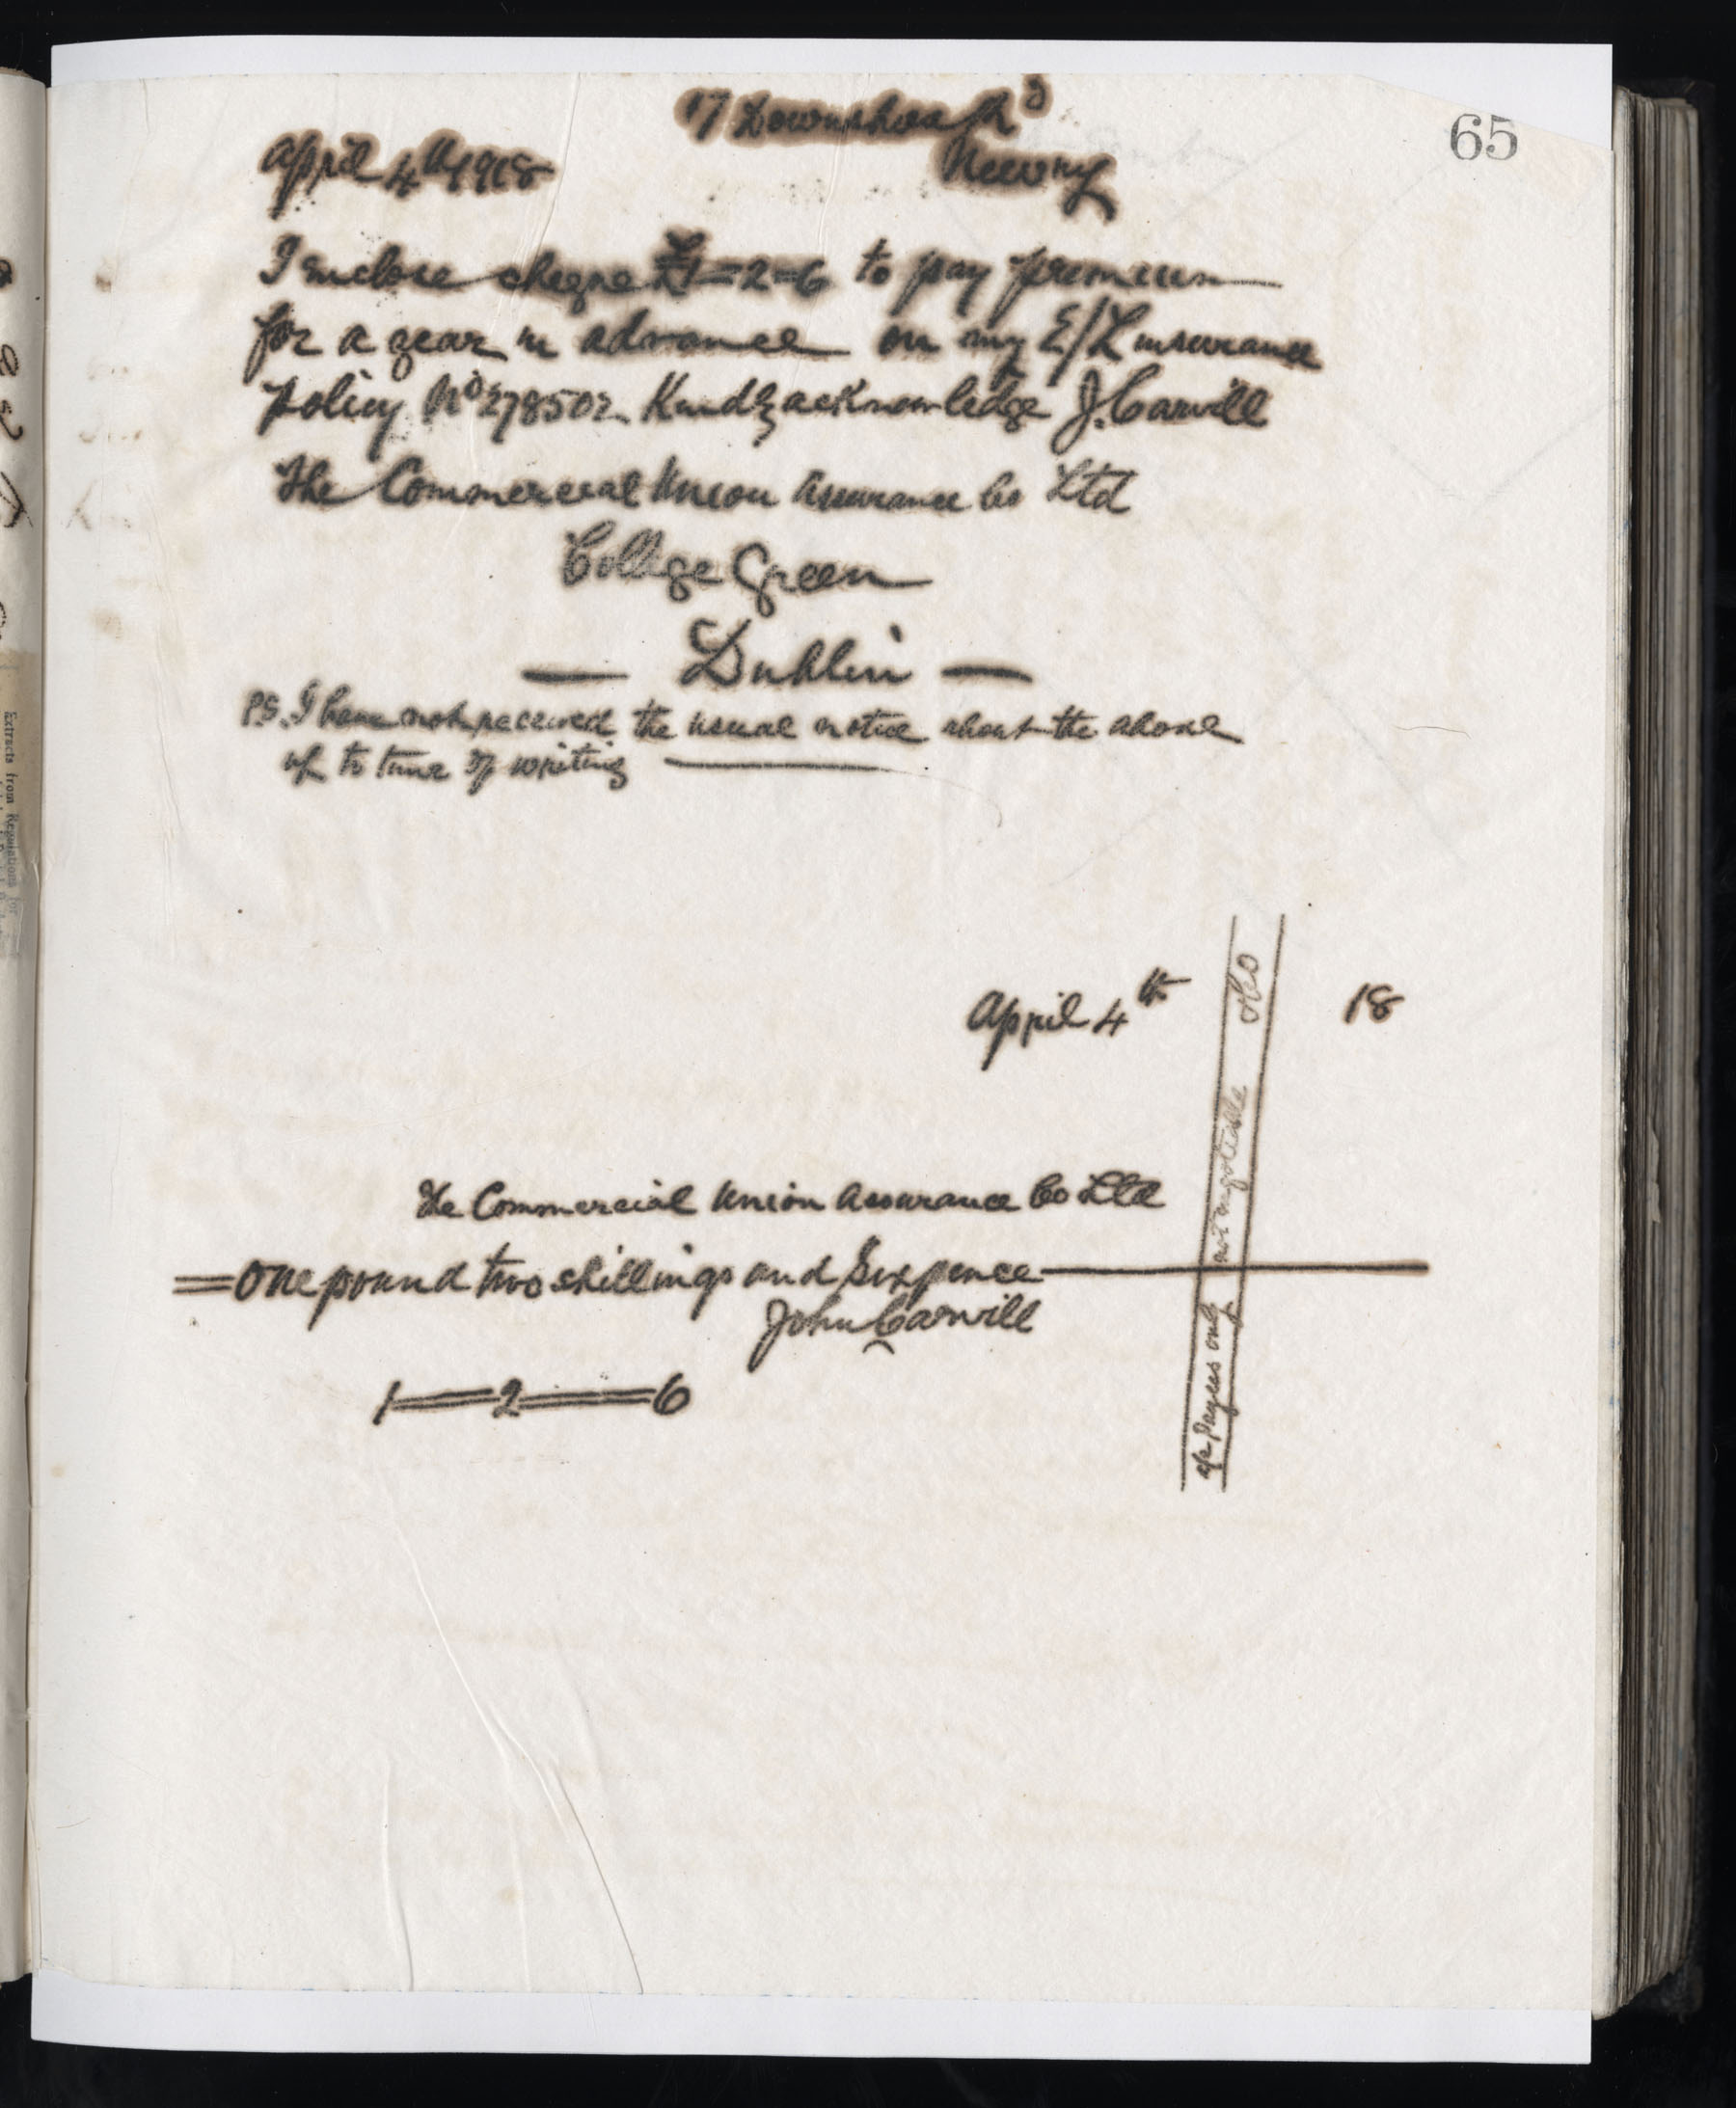 65
17 Downshire Rd
April 4th 1918 Newry
I enclose cheque £1=2=6 to pay premium
for a year in advance on my E/L insurance
policy No 278502 Kindly acknowledge J. Carvill
The Commercial Union Assurance Co Ltd
College Green
— Dublin —
PS. I have not received the usual notice about the above
up to time of writing
April 4th 18
The Commercial Union Assurance Co Ltd
= One pound two shillings and Sixpence
John Carvill
1=2=6
a/c Payees only not negotiable &Co
Extracts from Regulations for